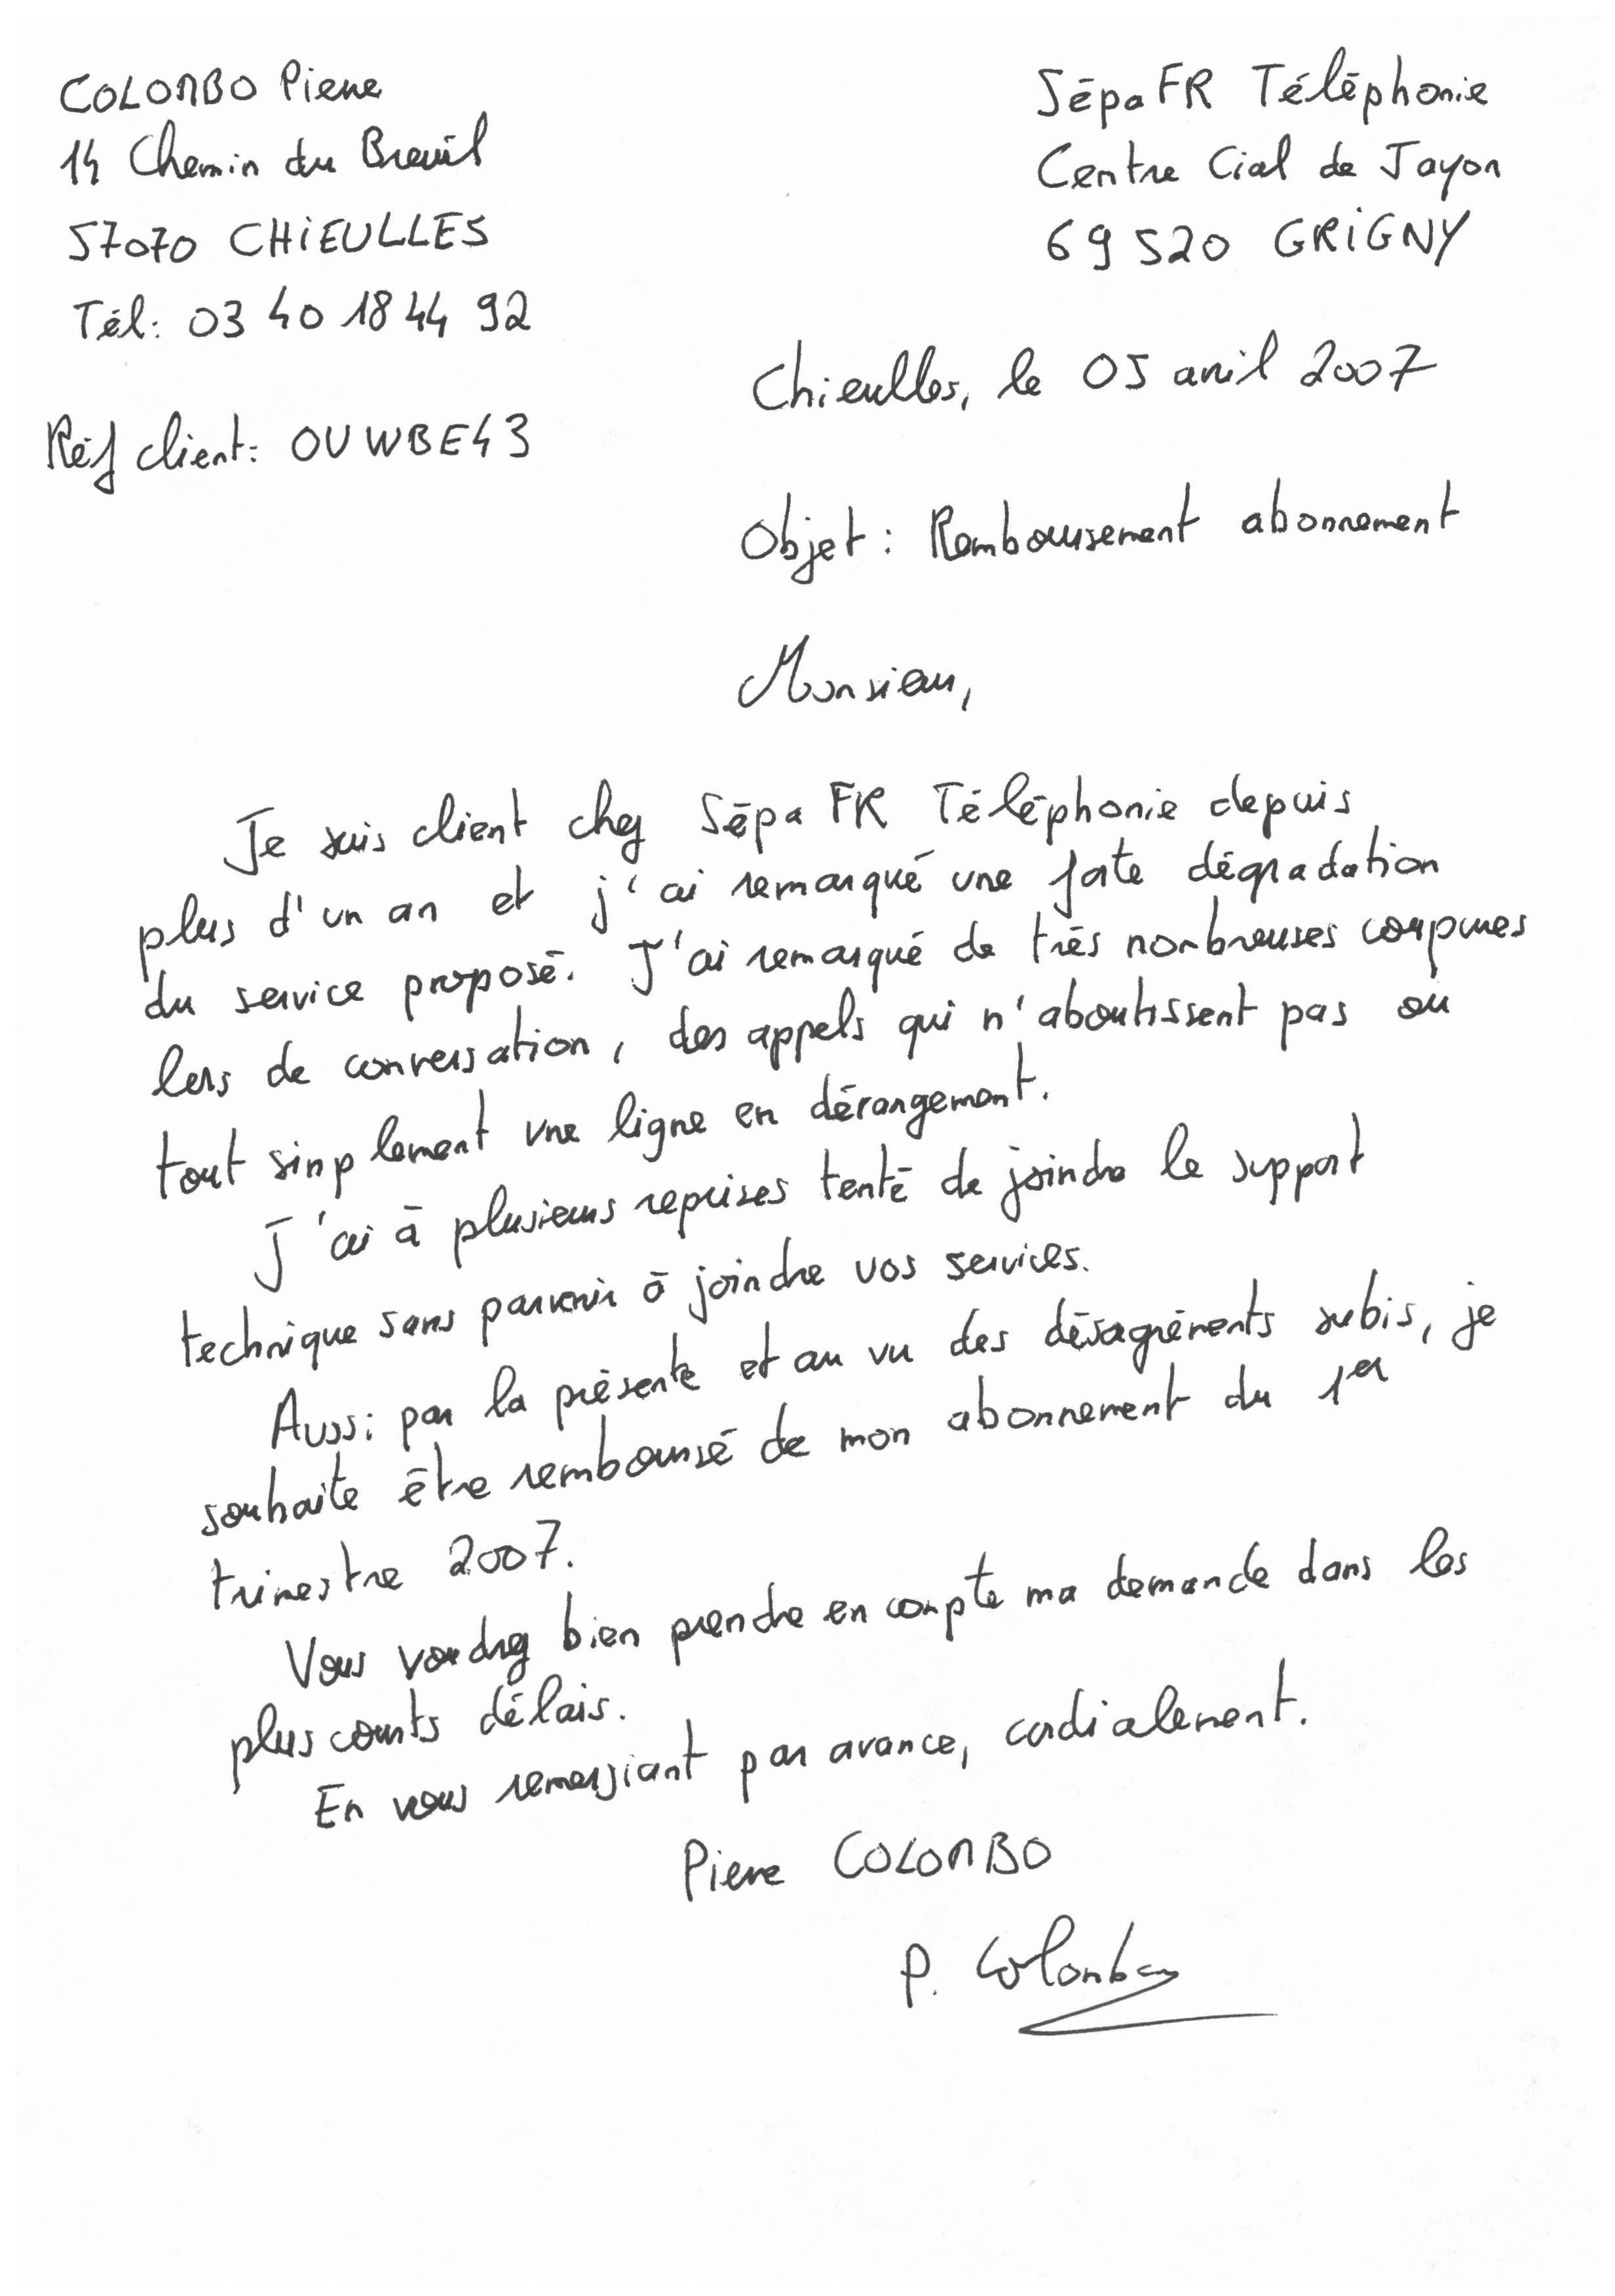 COLOMBO Pierre
14 Chemin du Breuil
57070 CHIEULLES
Tél: 03 40 18 44 92
Réf client: OUWBE43
SépaFR Téléphonie
Centre Cial de Jayon
69520 GRIGNY
Chieulles, le 05 avril 2007
Objet: Remboursement abonnement
Monsieur,
Je suis client chez Sépa FR Téléphonie depuis
plus d'un an et j'ai remarqué une forte dégradation
du service proposé. J'ai remarqué de très nombreuses coupures
lors de conversation, des appels qui n'aboutissent pas ou
tout simplement une ligne en dérangement.
J'ai à plusieurs reprises tenté de joindre le support
technique sans parvenir à joindre vos services.
Aussi par la présente et au vu des désagréments subis, je
souhaite être remboursé de mon abonnement du 1er
trimestre 2007.
Vous voudrez bien prendre en compte ma demande dans les
plus courts délais.
En vous remersiant par avance, cordialement.
Pierre COLOMBO
P. Colombo